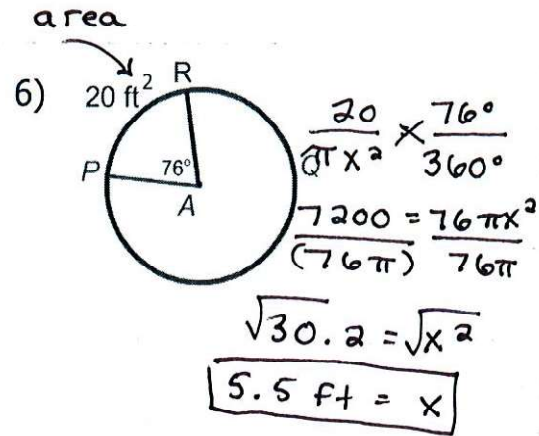 area
6) 20 ft² R
P 76° A
20/πx² × 76°/360°
7200/(76π) = 76πx²/76π
√30.2 = √x²
5.5 ft = x